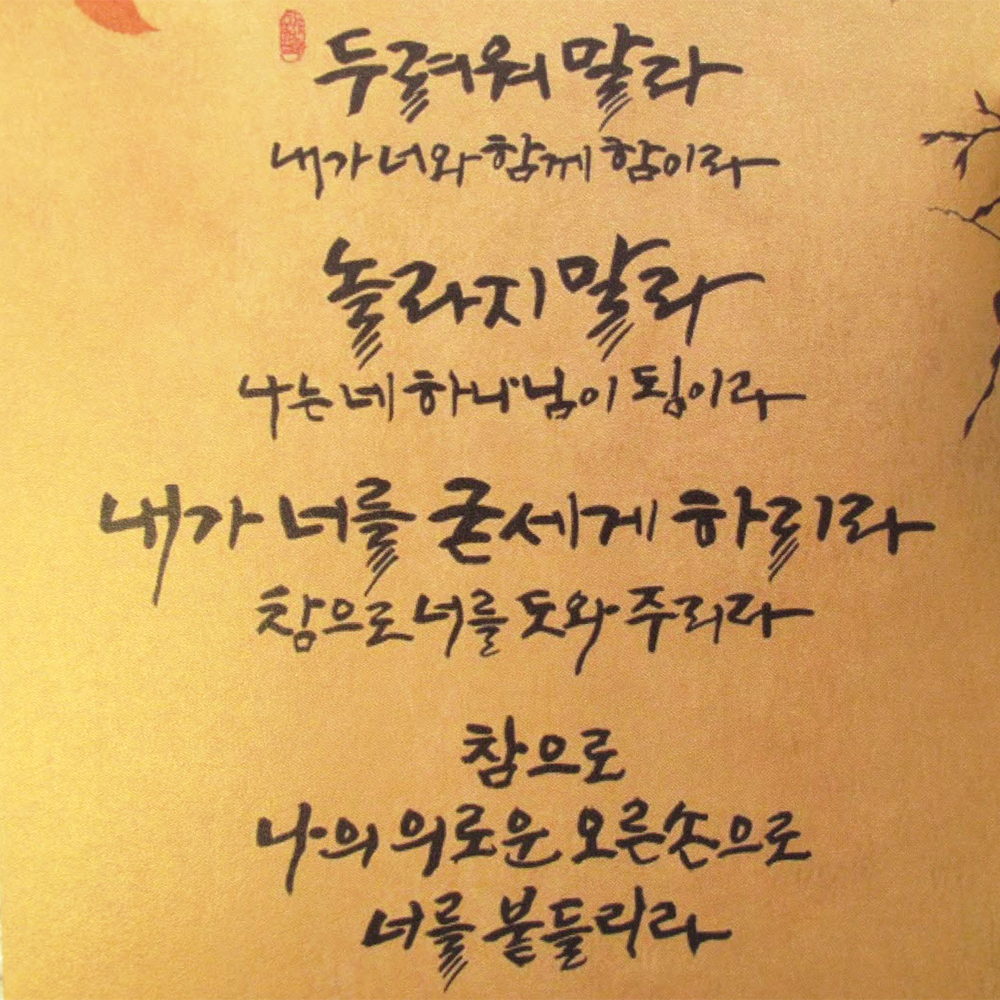 두려워 말라
내가 너와 함께 함이라
놀라지 말라
나는 네 하나님이 됨이라
내가 너를 굳세게 하리라
참으로 너를 도와 주리라
참으로
나의 의로운 오른손으로
너를 붙들리라